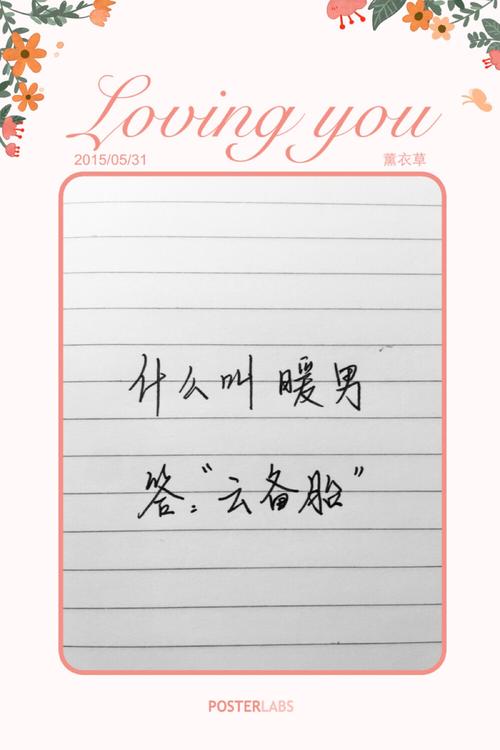 Loving you
2015/05/31 薰衣草
什么叫 暖男
答：“云备胎”
POSTERLABS